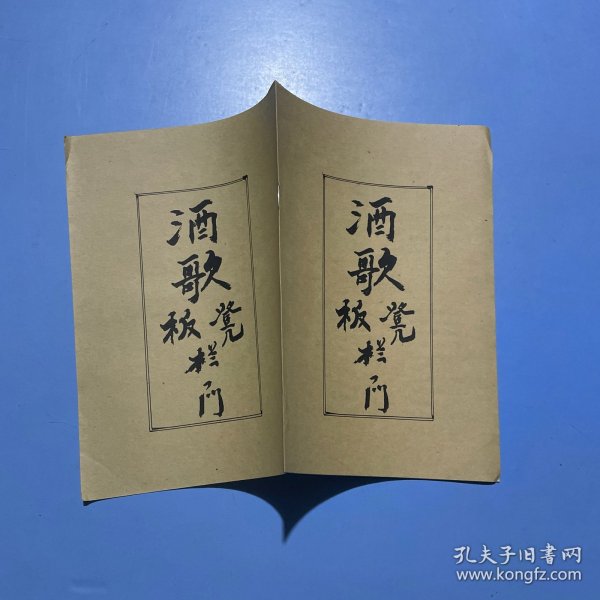 酒歌
板凳
栏门
酒歌
板凳
栏门
孔夫子旧书网
www.kongfz.com